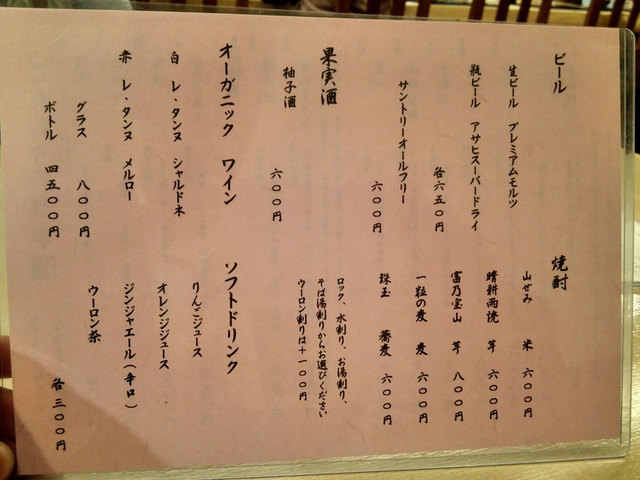 ビール
生ビール プレミアムモルツ
瓶ビール アサヒスーパードライ
各六五〇円
サントリーオールフリー
六〇〇円
果実酒
柚子酒
六〇〇円
オーガニック ワイン
白 レ・タンヌ シャルドネ
赤 レ・タンヌ メルロー
グラス 八〇〇円
ボトル 四五〇〇円
焼酎
山せみ 米 六〇〇円
晴耕雨読 芋 六〇〇円
富乃宝山 芋 八〇〇円
一粒の麦 麦 六〇〇円
珠玉 蕎麦 六〇〇円
ロック、水割り、お湯割り、
そば湯割りからお選びください
ウーロン割りは+一〇〇円
ソフトドリンク
りんごジュース
オレンジジュース
ジンジャエール(辛口)
ウーロン茶
各三〇〇円